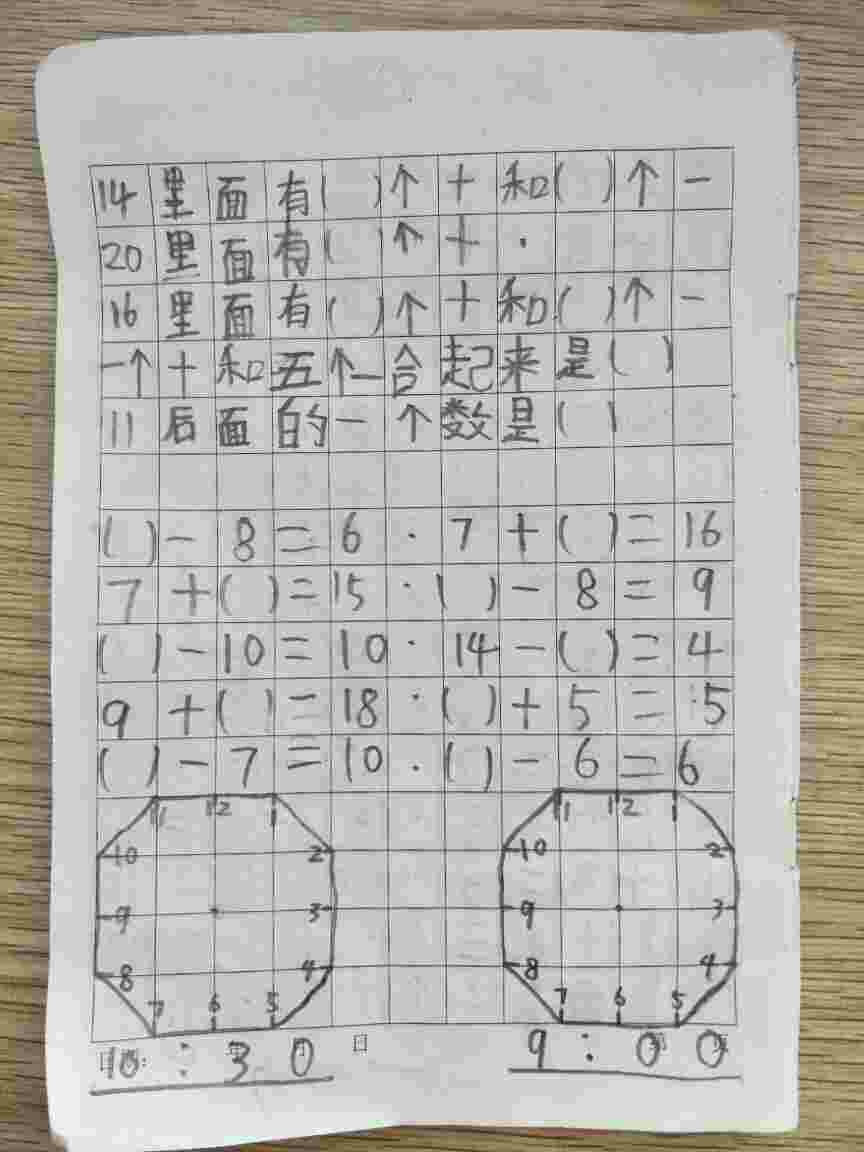 14里面有( )个十和( )个一
20里面有( )个十.
16里面有( )个十和( )个一
一个十和五个一合起来是( )
11后面的一个数是( )
( )-8=6 · 7+( )=16
7+( )=15 · ( )-8=9
( )-10=10 · 14-( )=4
9+( )=18 · ( )+5=5
( )-7=10 · ( )-6=6
11 12 1 11 12 1
10 2 10 2
9 3 9 3
8 4 8 4
7 6 5 7 6 5
10:30 9:00